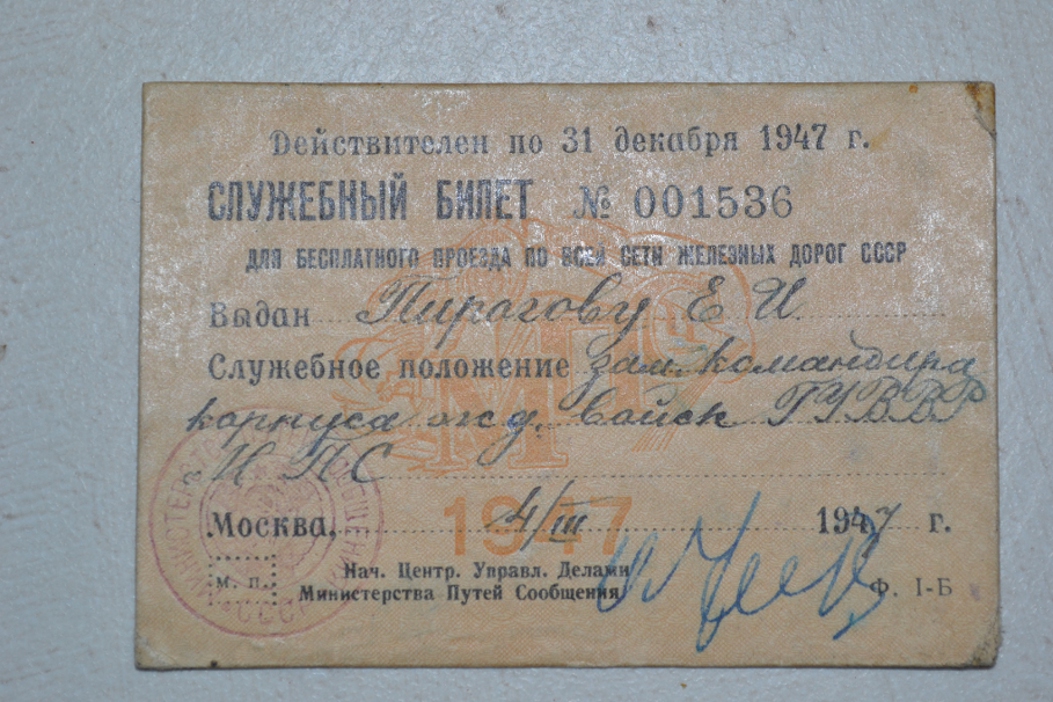 Действителен по 31 декабря 1947 г.
СЛУЖЕБНЫЙ БИЛЕТ № 001536
ДЛЯ БЕСПЛАТНОГО ПРОЕЗДА ПО ВСЕЙ СЕТИ ЖЕЛЕЗНЫХ ДОРОГ СССР
Выдан Пирогову Е И
Служебное положение зам. командира
корпуса жд. войск ГУВВР
МПС
1947
Москва, 4/III 1947 г.
м. п.
Нач. Центр. Управл. Делами
Министерства Путей Сообщения
Ф. I-Б